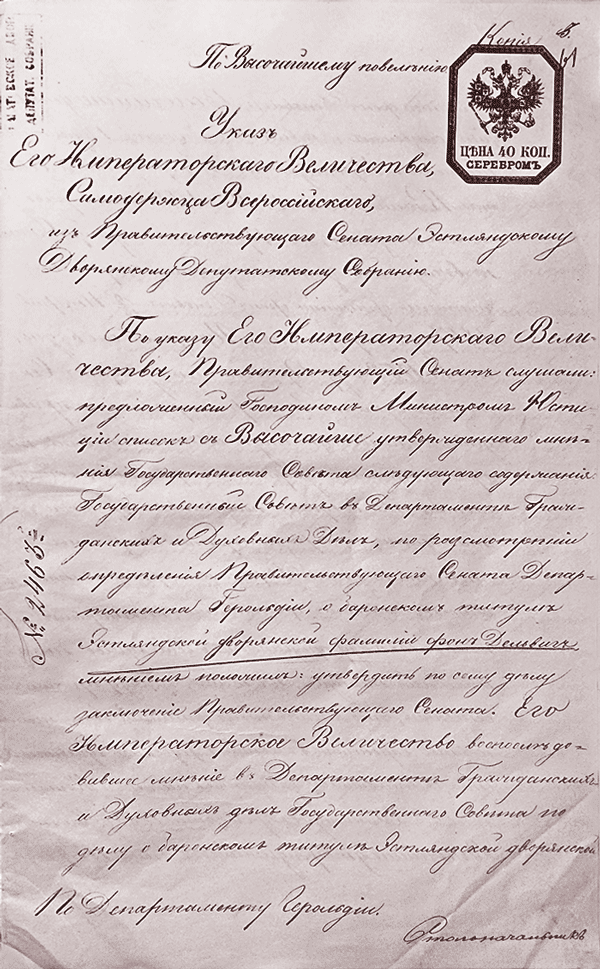 Копія
По Высочайшему повелѣнію
ЦѢНА 40 КОП.
СЕРЕБРОМЪ
Указъ
Его Императорскаго Величества,
Самодержца Всероссійскаго,
изъ Правительствующаго Сената Эстляндскому
Дворянскому Депутатскому Собранію.
По указу Его Императорскаго Вели-
чества, Правительствующій Сенатъ слушали:
предложенный Господиномъ Министромъ Юсти-
ціи списокъ съ Высочайше утвержденнаго мнѣ-
нія Государственнаго Совѣта слѣдующаго содержанія:
Государственный Совѣтъ въ Департаментѣ Граж-
данскихъ и Духовныхъ Дѣлъ, по разсмотрѣніи
опредѣленія Правительствующаго Сената Депар-
тамента Герольдіи, о баронскомъ титулѣ
Эстляндской дворянской фамиліи фонъ Дельвигъ,
мнѣніемъ положилъ: утвердить по сему дѣлу
заключеніе Правительствующаго Сената. Его
Императорское Величество воспослѣдо-
вавшее мнѣніе въ Департаментѣ Гражданскихъ
и Духовныхъ дѣлъ Государственнаго Совѣта по
дѣлу о баронскомъ титулѣ Эстляндской дворянской
По Департаменту Герольдіи.
Столоначальникъ
№ 2465
ДЕПУТАТ. СОБРАН